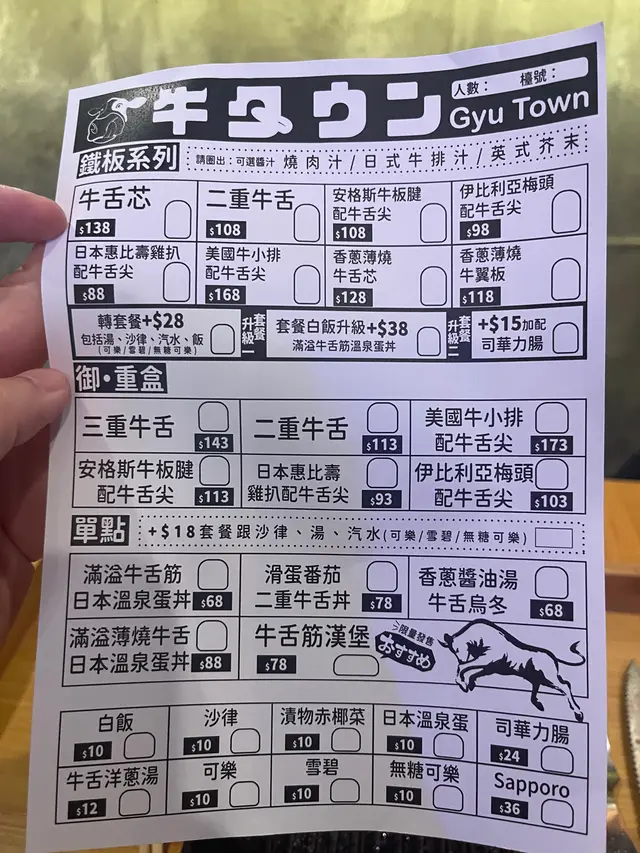 牛タウン
人數： 檯號：
Gyu Town
鐵板系列
請圈出：可選醬汁 燒肉汁/日式牛排汁/英式芥末
牛舌芯
$138
二重牛舌
$108
安格斯牛板腱
配牛舌尖
$108
伊比利亞梅頭
配牛舌尖
$98
日本惠比壽雞扒
配牛舌尖
$88
美國牛小排
配牛舌尖
$168
香蔥薄燒
牛舌芯
$128
香蔥薄燒
牛翼板
$118
轉套餐+$28
包括湯、沙律、汽水、飯
(可樂/雪碧/無糖可樂)
套餐升級一
套餐白飯升級+$38
滿溢牛舌筋溫泉蛋丼
套餐升級二
+$15加配
司華力腸
御·重盒
三重牛舌
$143
二重牛舌
$113
美國牛小排
配牛舌尖
$173
安格斯牛板腱
配牛舌尖
$113
日本惠比壽
雞扒配牛舌尖
$93
伊比利亞梅頭
配牛舌尖
$103
單點
+$18套餐跟沙律、湯、汽水(可樂/雪碧/無糖可樂)
滿溢牛舌筋
日本溫泉蛋丼
$68
滑蛋番茄
二重牛舌丼
$78
香蔥醬油湯
牛舌烏冬
$68
滿溢薄燒牛舌
日本溫泉蛋丼
$88
牛舌筋漢堡
$78
>限量發售
おすすめ
白飯
$10
沙律
$10
漬物赤椰菜
$10
日本溫泉蛋
$10
司華力腸
$24
牛舌洋蔥湯
$12
可樂
$10
雪碧
$10
無糖可樂
$10
Sapporo
$36